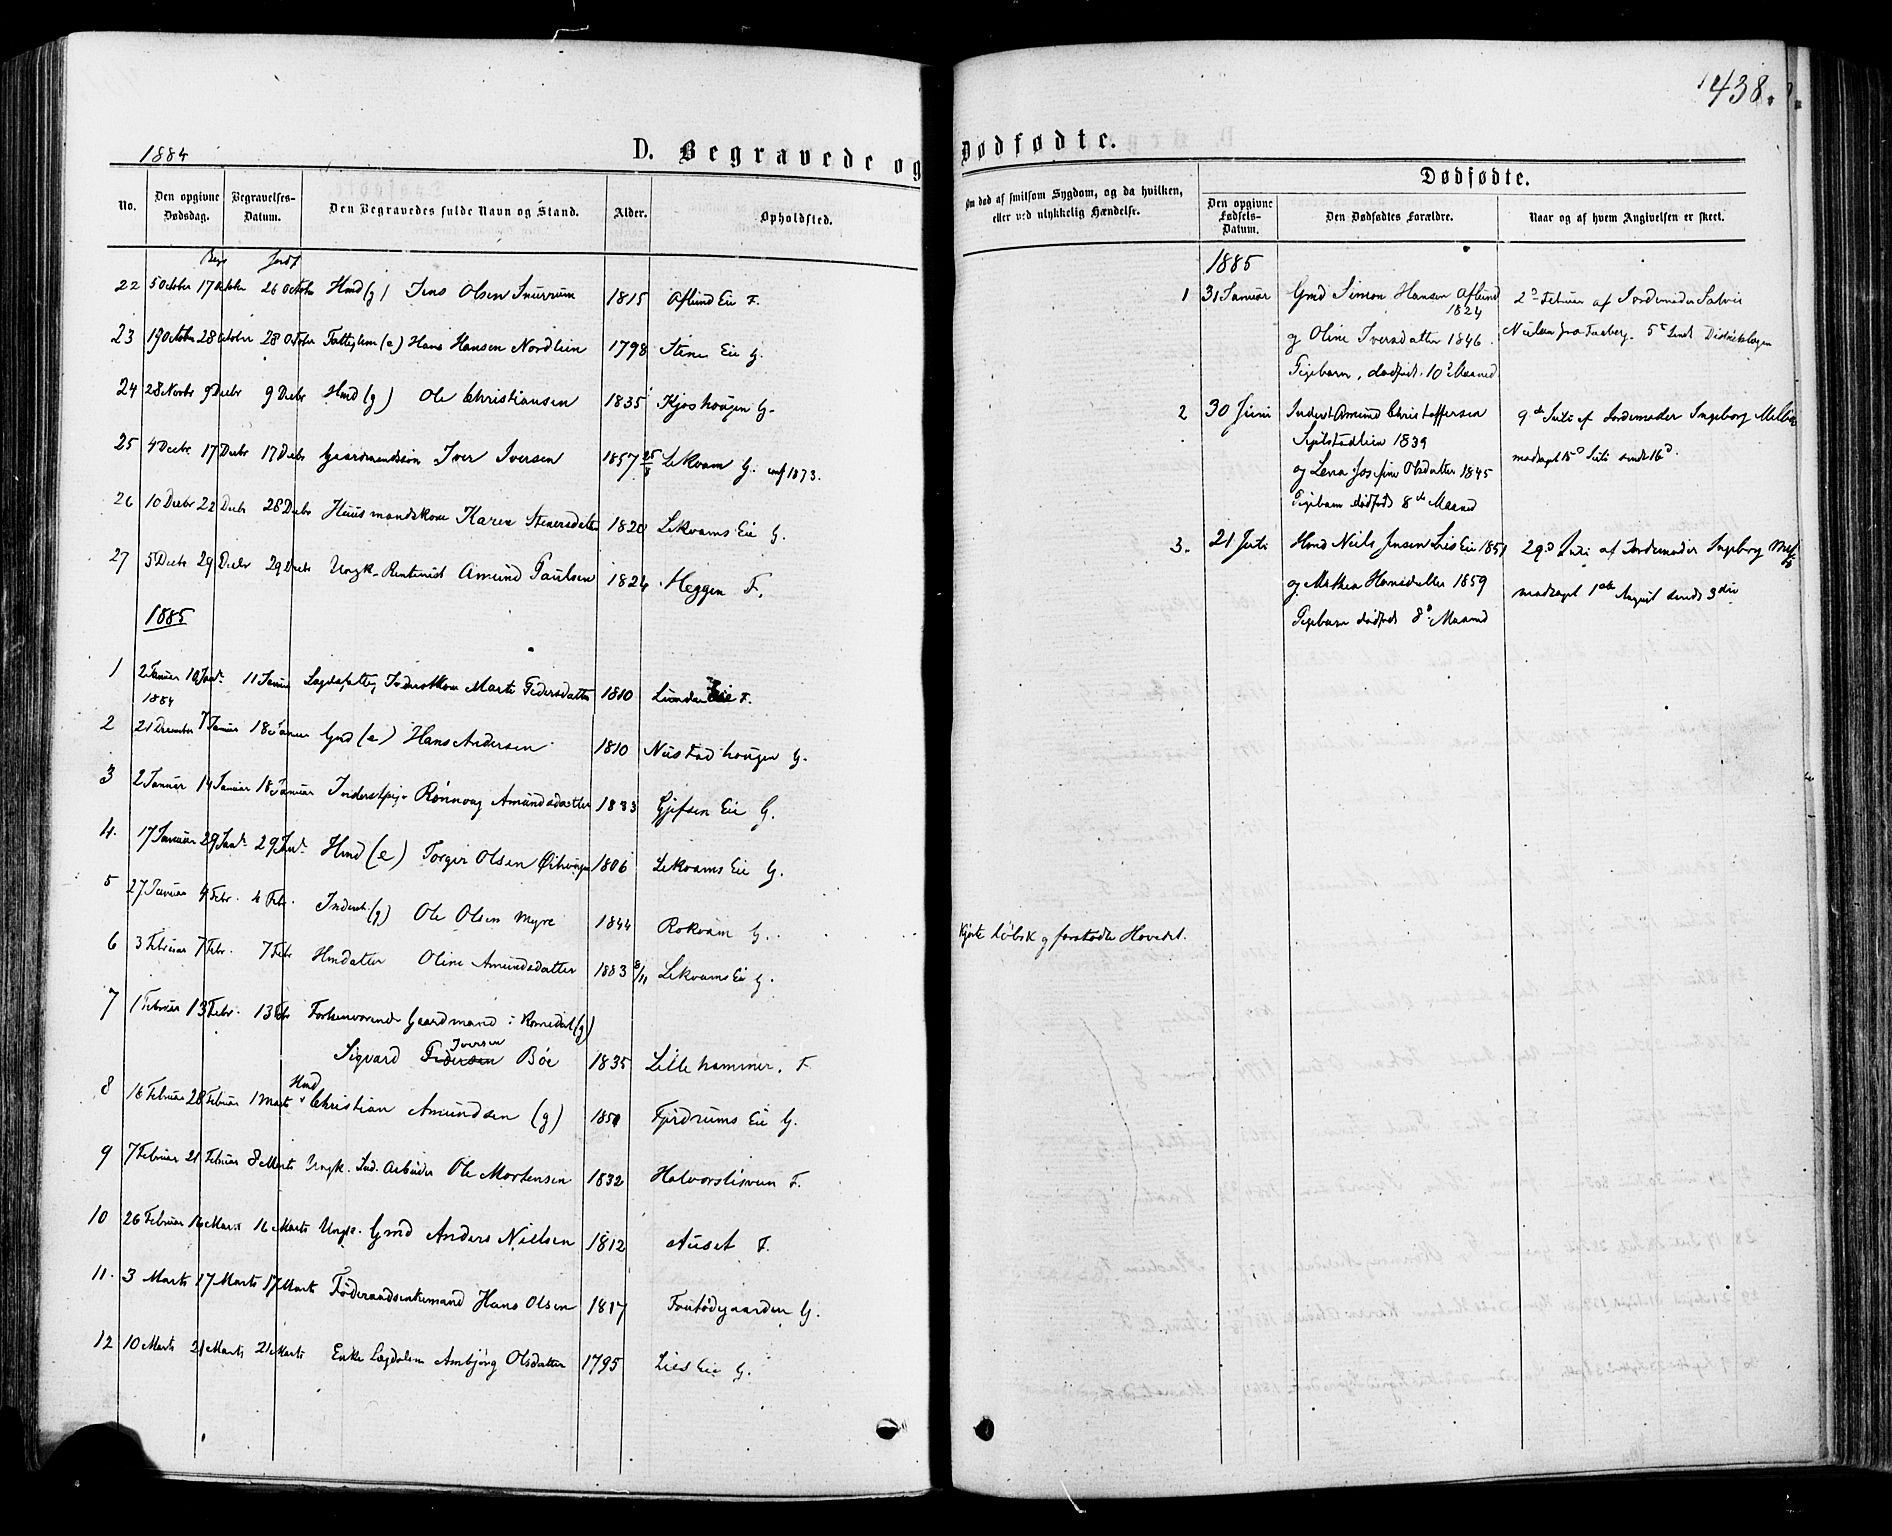 438.
1884
D. Begravede og Dødfødte.
No.
Den opgivne Dødsdag.
Begravelses-Datum.
Den Begravedes fulde Navn og Stand.
Alder.
Opholdsted.
Om død af smitsom Sygdom, og da hvilken, eller ved ulykkelig Hændelse.
Dødfødte.
Den opgivne Fødsels-Datum.
Den Dødfødtes Forældre.
Naar og af hvem Angivelsen er skeet.
22 5 October 17 October 26 October Hmd (g) Jens Olsen 1815 Aflund Eie F.
23 19 October 28 October 28 October Fattiglem (e) Hans Hansen Nordlien 1798 Stene Eie G.
24 28 Novbr 9 Decbr 9 Decbr Hmd (g) Ole Christiansen 1835 Kjoshougen G.
25 4 Decbr 17 Decbr 17 Decbr Gaardmandssøn Iver Iversen 1857 25/5 Lekvam G. conf 1873.
26 10 Decbr 22 Decbr 28 Decbr Huusmandskone Karen Steversdatter 1820 Lekvams Eie G.
27 5 Decbr 29 Decbr 29 Decbr Ungk. Amund Paulsen 1824 Heggen F.
1885
1 2 Januar 10 Jan. 11 Januar Marte Pedersdatter 1810 Lunden Eie F.
1884
2 21 December 7 Januar 18 Januar Gmd (e) Hans Andersen 1810 Nustadhougen G.
3 2 Januar 14 Januar 18 Januar Inderstpige Rønnoug Amundsdatter 1833 Gjefsen Eie G.
4. 17 Januar 29 Jan. 29 Jan. Hmd (e) Torger Olsen 1806 Lekvams Eie G.
5 27 Januar 4 Febr. 4 Febr. Inderst. (g) Ole Olsen Myre 1844 Rokvam G.
6 3 Februar 7 Febr. 7 Febr Hmdatter Oline Amundsdatter 1883 8/11 Lekvams Eie G.
7 1 Februar 13 Febr. 13 Febr Forhenværende Gaardmand i Romedal (g)
Iversen
Sigvard Pedersen Bøe 1835 Lillehammer. F.
Hmd
8 16 Februar 28 Februar 1 Marts Christian Amundsen (g) 1851 Fjerdrums Eie G.
9 7 Februar 21 Februar 8 Marts Ungk. Ind. Arbeider Ole Mortensen 1832 Halvorslisveen F.
10 26 Februar 16 Marts 16 Marts Ungk. Gmd Anders Nielsen 1812 Auset F.
11. 3 Marts 17 Marts 17 Marts Føderaadsenkemand Hans Olsen 1817 Foutødegaarden G.
12 10 Marts 21 Marts 21 Marts Enke Lægdslem Ambjørg Olsdatter 1795 Lies Eie G.
Kjørte løbsk og forstødte Hovedet.
1885
1 31 Januar Gmd Simon Hansen Aflund
1824
og Oline Iversdatter 1846.
Pigebarn, dødfødt. 10 Maaned
2 Februar af Jordemoder
Nielsen fra Faaberg. 5 Sendt Distriktslægen
2 30 Juni Inderst Amund Christoffersen
1839
og Lena Josefine Olsdatter 1845
Pigebarn dødfødt 8de Maaned
9de Juli af Jordemoder Ingeborg
modtaget 15 Juli sendt 16
3. 21 Juli Hmd Niels Jensen Lies Eie 1851
og Mathea Hansdatter 1859
Pigebarn dødfødt 8 Maaned
29 Juli af Jordemoder Ingeborg
modtaget 1ste August sendt 3die